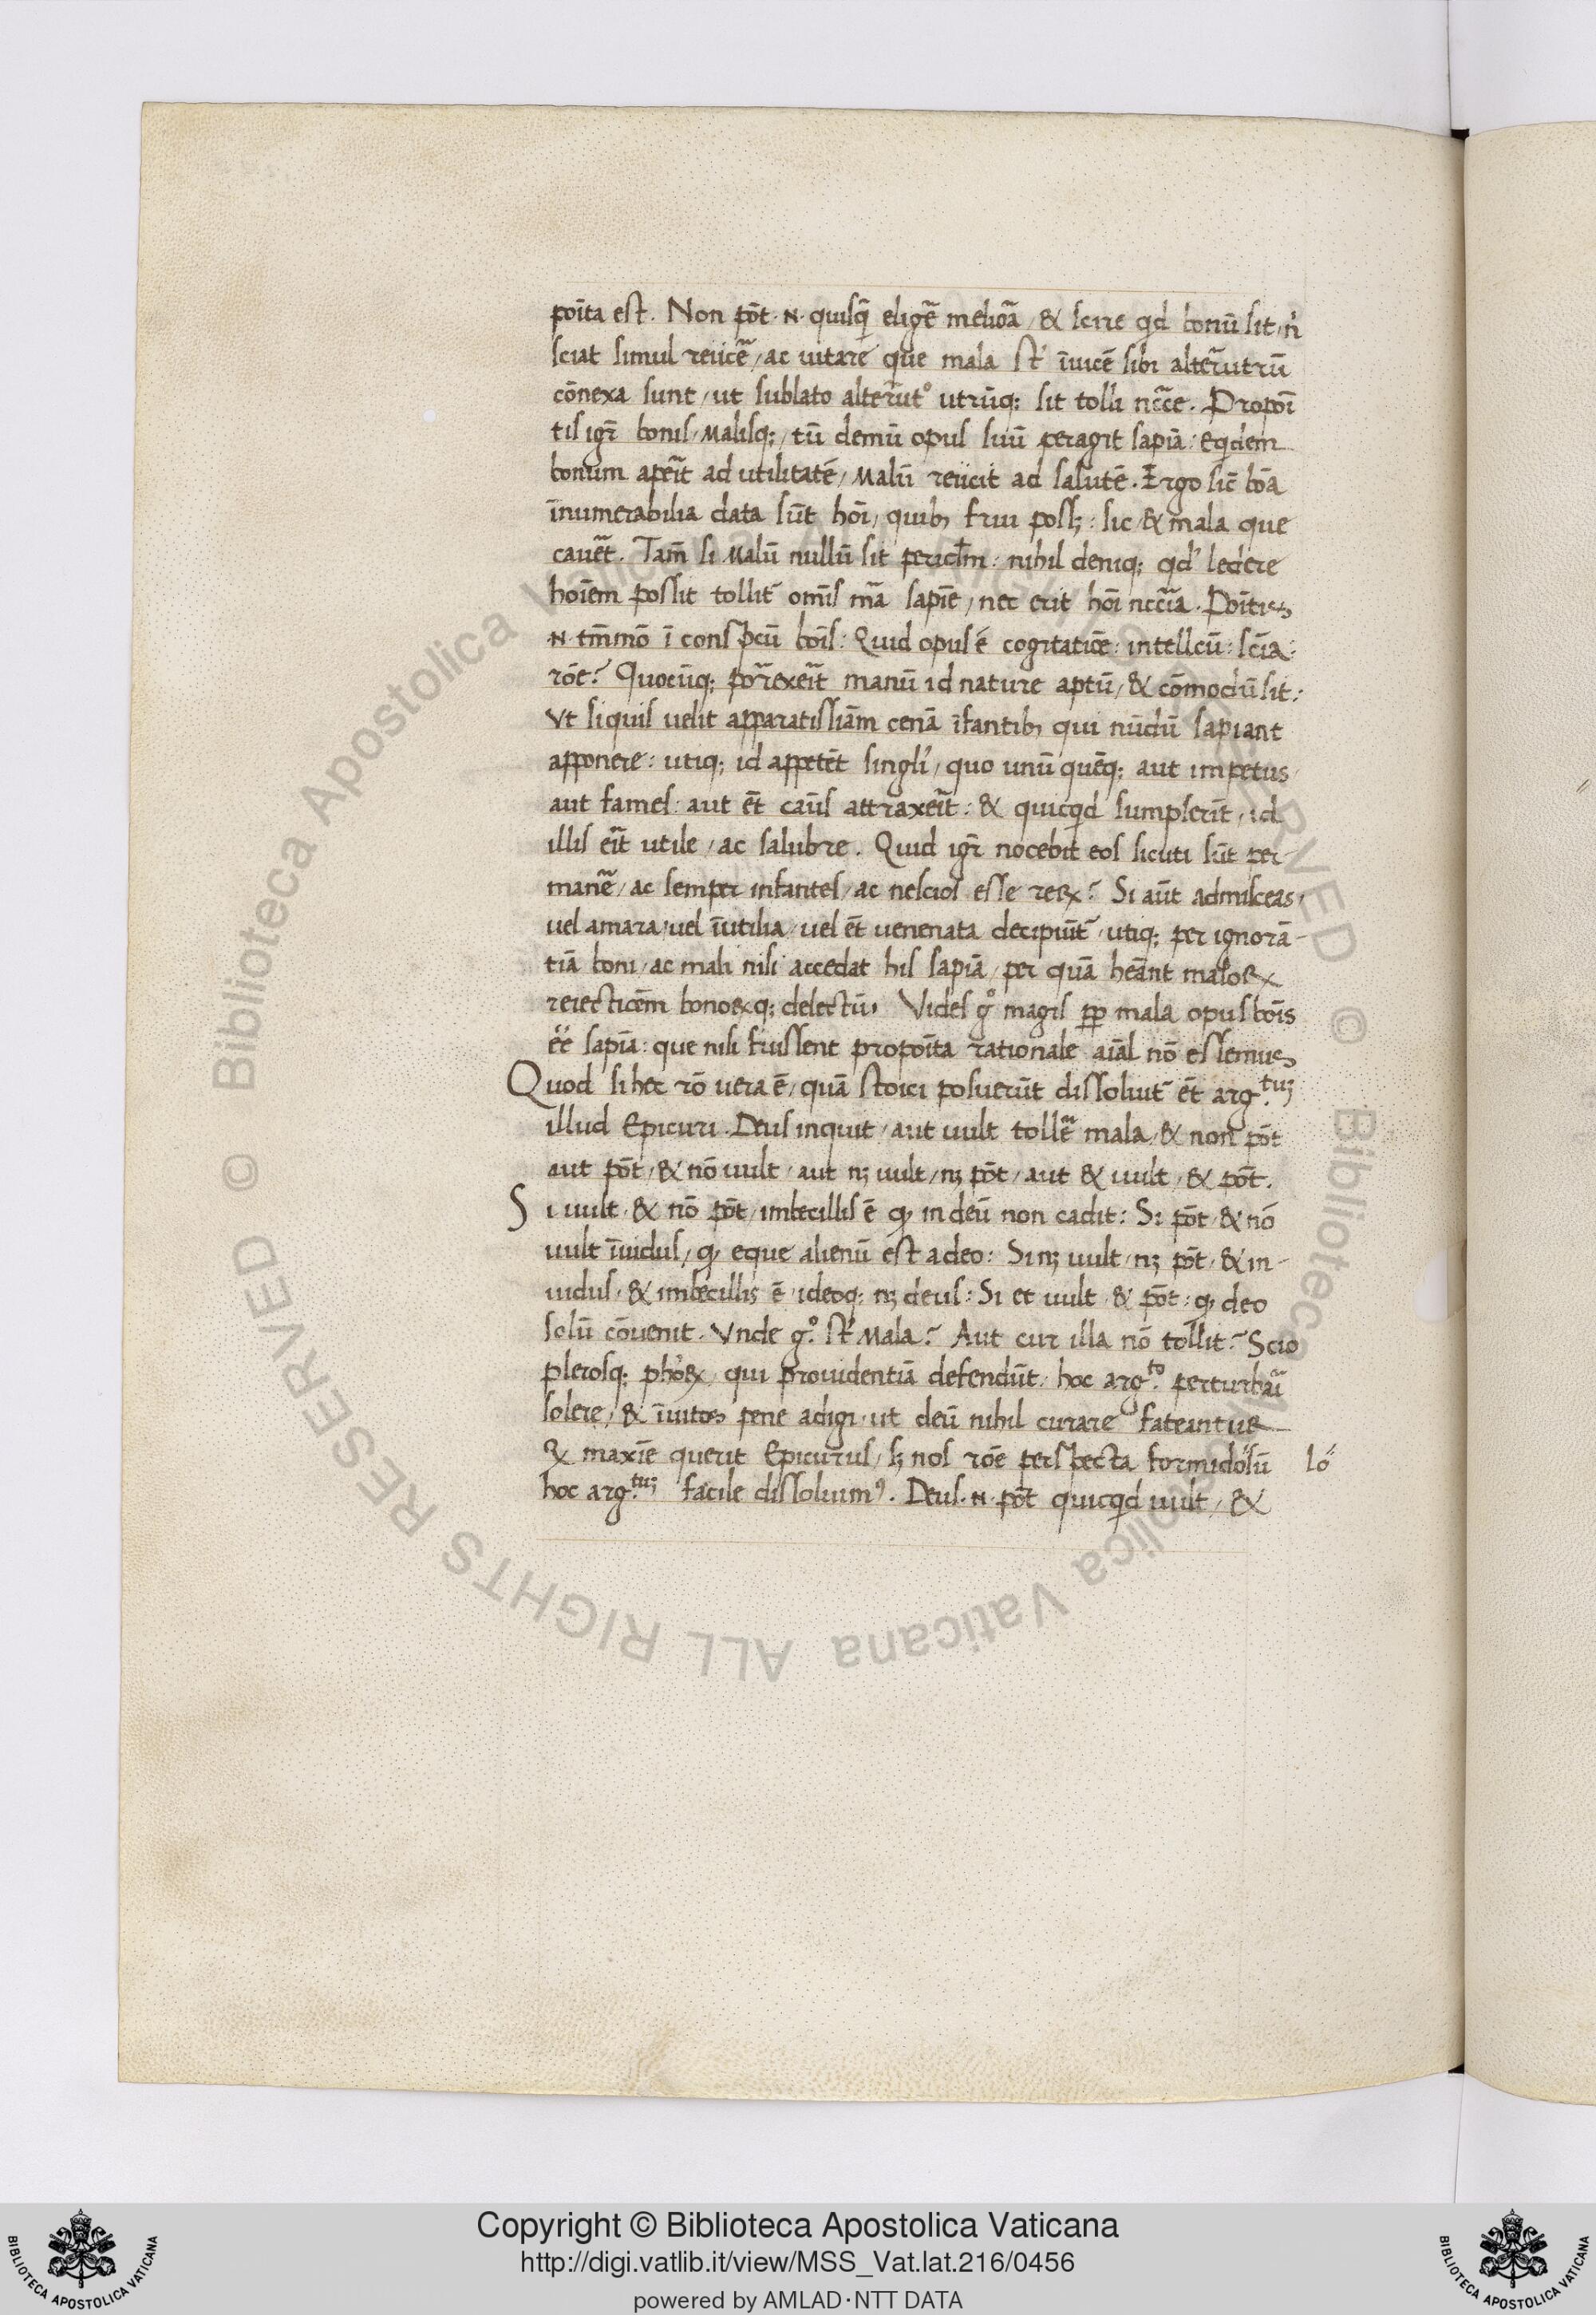 poīta est. Non pōt .n. quisq̄ eligē meliōa / & scire qd bonū sit / ń
sciat simul reiicē / ac uitare que mala st́ īuicē sibi alterutrū
cōnexa sunt / ut sublato alterut° utrūq; sit tolli nccē. Propoi
tis igr̄ bonis / Malisq; / tū demū opus suū peragit sapiā: Eqdem
bonum apeīt ad utilitatē / Malū reiicit ad salutē. Ergo sic̄ bōa
īnumerabilia data sūt hōi / quib; frui poss; : sic / & mala que
cauēt. Tam̄ si Malū nullū sit pericl̄m: nihil deniq; qd' ledere
hoīem possit tollit̄ omīs mā sapīe / nec erit hōi nccīa. Poitis
.n. tm̄mō ī conspcū boīs: Quid opus ē cogitatiōe: intellcū: scīa:
rōe? Quocūq; porexeīt manū id nature aptū / & cōmodū sit:
Vt siquis uelit apparatissiam̄ cenā īfantib; qui nūdū sapiant
apponere: utiq; id appetēt singli' / quo unū quēq; aut impetus
aut fames: aut ēt caūs attraxeīt: & quicqd sumpserīt / id
illis eīt utile / ac salubre. Quid igr̄ nocebit eos sicuti sūt per-
manē / ac semper infantes / ac nescios esse reꝝ? Si aūt admisceas /
uel amara / uel īutilia / uel ēt uenenata decipiūt̄ / utiq; per ignorā-
tiā boni / ac mali nisi accedat his sapiā / per quā heānt maloꝝ
reiecticēm bonoꝝq; delectū. Vides g° magis pp mala opus boīs
ēē sapiā: que nisi fuissent propoīta rationale aiāl nō essemus
Quod si hec rō uera ē / quā stoici posuerūt dissoluit̄ ēt arg.tuȝ
illud Epicuri. Deus inquit / aut uult tollē mala / & non pōt
aut pōt / & nō uult / aut nȝ uult / nȝ pōt / aut & uult / & pōt.
Si uult / & nō pōt / imbecillis ē ꝙ in deū non cadit: Si pōt / & nō
uult īuidus / ꝙ eque alienū est a deo: Si nȝ uult / nȝ pōt / & in-
uidus / & imbecillis ē / ideoq; nȝ deus: Si et uult / & pōt: ꝙ deo
solū cōuenit. Vnde g.° st́ Mala? Aut cur illa nō tollit? Scio
plerosq; phōꝝ qui prouidentiā defendūt / hoc arg.to perturbaī
solere / & īuitos pene adigi / ut deū nihil curare fateantur
ꝙ maxīe querit Epicurus / sȝ nos rōe perspecta formidosū
lo"
hoc arg.tuȝ facile dissoluim⁹. Deus .n. pōt quicqd uult / &
Copyright © Biblioteca Apostolica Vaticana
http://digi.vatlib.it/view/MSS_Vat.lat.216/0456
powered by AMLAD·NTT DATA
BIBLIOTECA APOSTOLICA VATICANA
BIBLIOTECA APOSTOLICA VATICANA